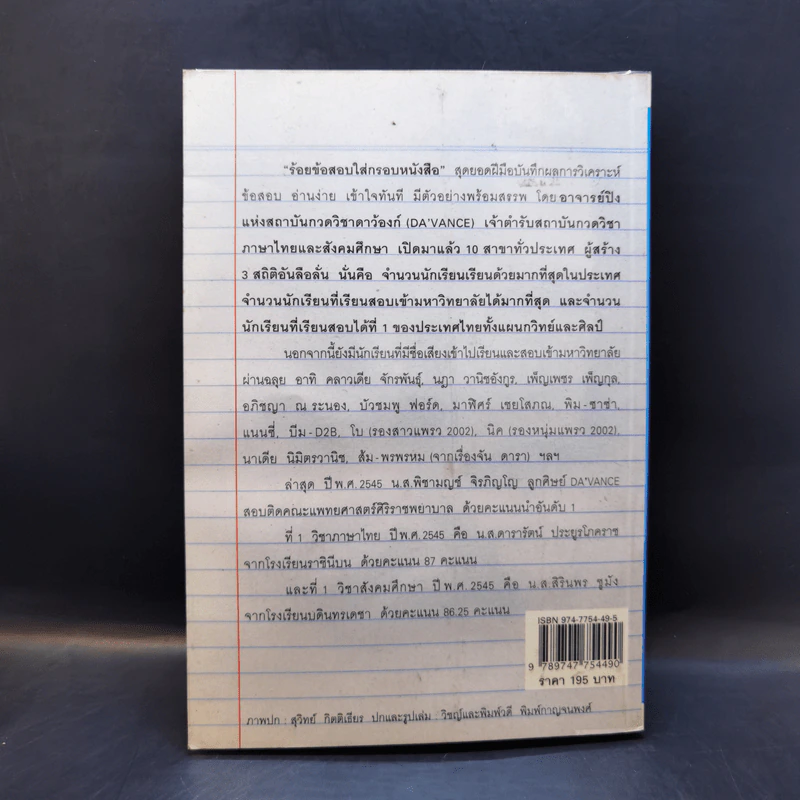 "ร้อยข้อสอบใส่กรอบหนังสือ" สุดยอดฝีมือบันทึกผลการวิเคราะห์
ข้อสอบ อ่านง่าย เข้าใจทันที มีตัวอย่างพร้อมสรรพ โดย อาจารย์ปิง
แห่งสถาบันกวดวิชาดาว้องก์ (DA'VANCE) เจ้าตำรับสถาบันกวดวิชา
ภาษาไทยและสังคมศึกษา เปิดมาแล้ว 10 สาขาทั่วประเทศ ผู้สร้าง
3 สถิติอันลือลั่น นั่นคือ จำนวนนักเรียนเรียนด้วยมากที่สุดในประเทศ
จำนวนนักเรียนที่เรียนสอบเข้ามหาวิทยาลัยได้มากที่สุด และจำนวน
นักเรียนที่เรียนสอบได้ที่ 1 ของประเทศไทยทั้งแผนกวิทย์และศิลป์
นอกจากนี้ยังมีนักเรียนที่มีชื่อเสียงเข้าไปเรียนและสอบเข้ามหาวิทยาลัย
ผ่านฉลุย อาทิ คลาวเดีย จักรพันธุ์, นฎา วานิชอังกูร, เพ็ญเพชร เพ็ญกุล,
อภิชญา ณ ระนอง, บัวชมพู ฟอร์ด, มาฬิศร์ เชยโสภณ, พิม-ซาซ่า,
แนนซี่, บีม-D2B, โบ (รองสาวแพรว 2002), นิค (รองหนุ่มแพรว 2002),
นาเดีย นิมิตรวานิช, ส้ม-พรพรหม (จากเรื่องจัน ดารา) ฯลฯ
ล่าสุด ปี พ.ศ. 2545 น.ส.พิชามญช์ จิรภิญโญ ลูกศิษย์ DA'VANCE
สอบติดคณะแพทยศาสตร์ศิริราชพยาบาล ด้วยคะแนนนำอันดับ 1
ที่ 1 วิชาภาษาไทย ปี พ.ศ. 2545 คือ น.ส.ดารารัตน์ ประยูรโภคราช
จากโรงเรียนราชินีบน ด้วยคะแนน 87 คะแนน
และที่ 1 วิชาสังคมศึกษา ปี พ.ศ. 2545 คือ น.ส.สิรินพร ชูมัง
จากโรงเรียนบดินทรเดชา ด้วยคะแนน 86.25 คะแนน
ISBN 974-7754-49-5
9 789747 754490
ราคา 195 บาท
ภาพปก : สุวิทย์ กิตติเธียร ปกและรูปเล่ม : วิชญ์และพิมพ์วดี พิมพ์กาญจนพงศ์